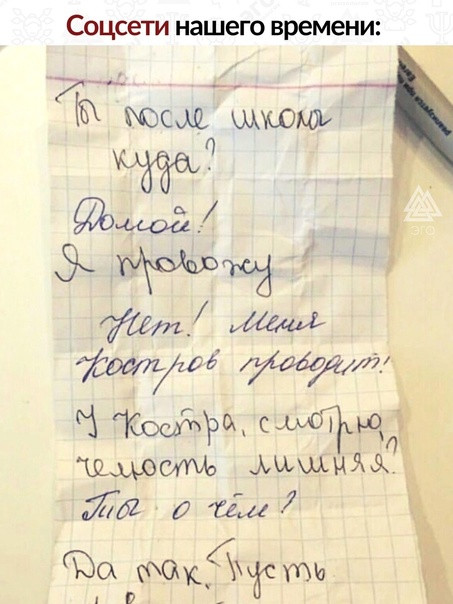 Соцсети нашего времени:
Ты после школы
куда?
Домой!
Я провожу
Нет! Меня
Костров проводит!
У Костра, смотрю,
челюсть лишняя?
Ты о чём?
Да так. Пусть
ЭГО